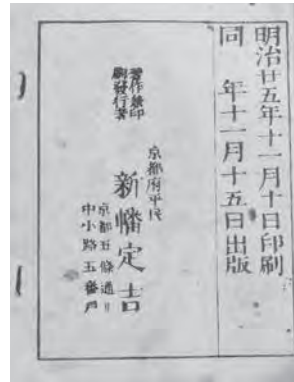 明治廿五年十一月十日印刷
同　年十一月十五日出版
著作兼印
刷發行者
京都府平民
新幡定吉
京都五條通リ
中小路五番戸